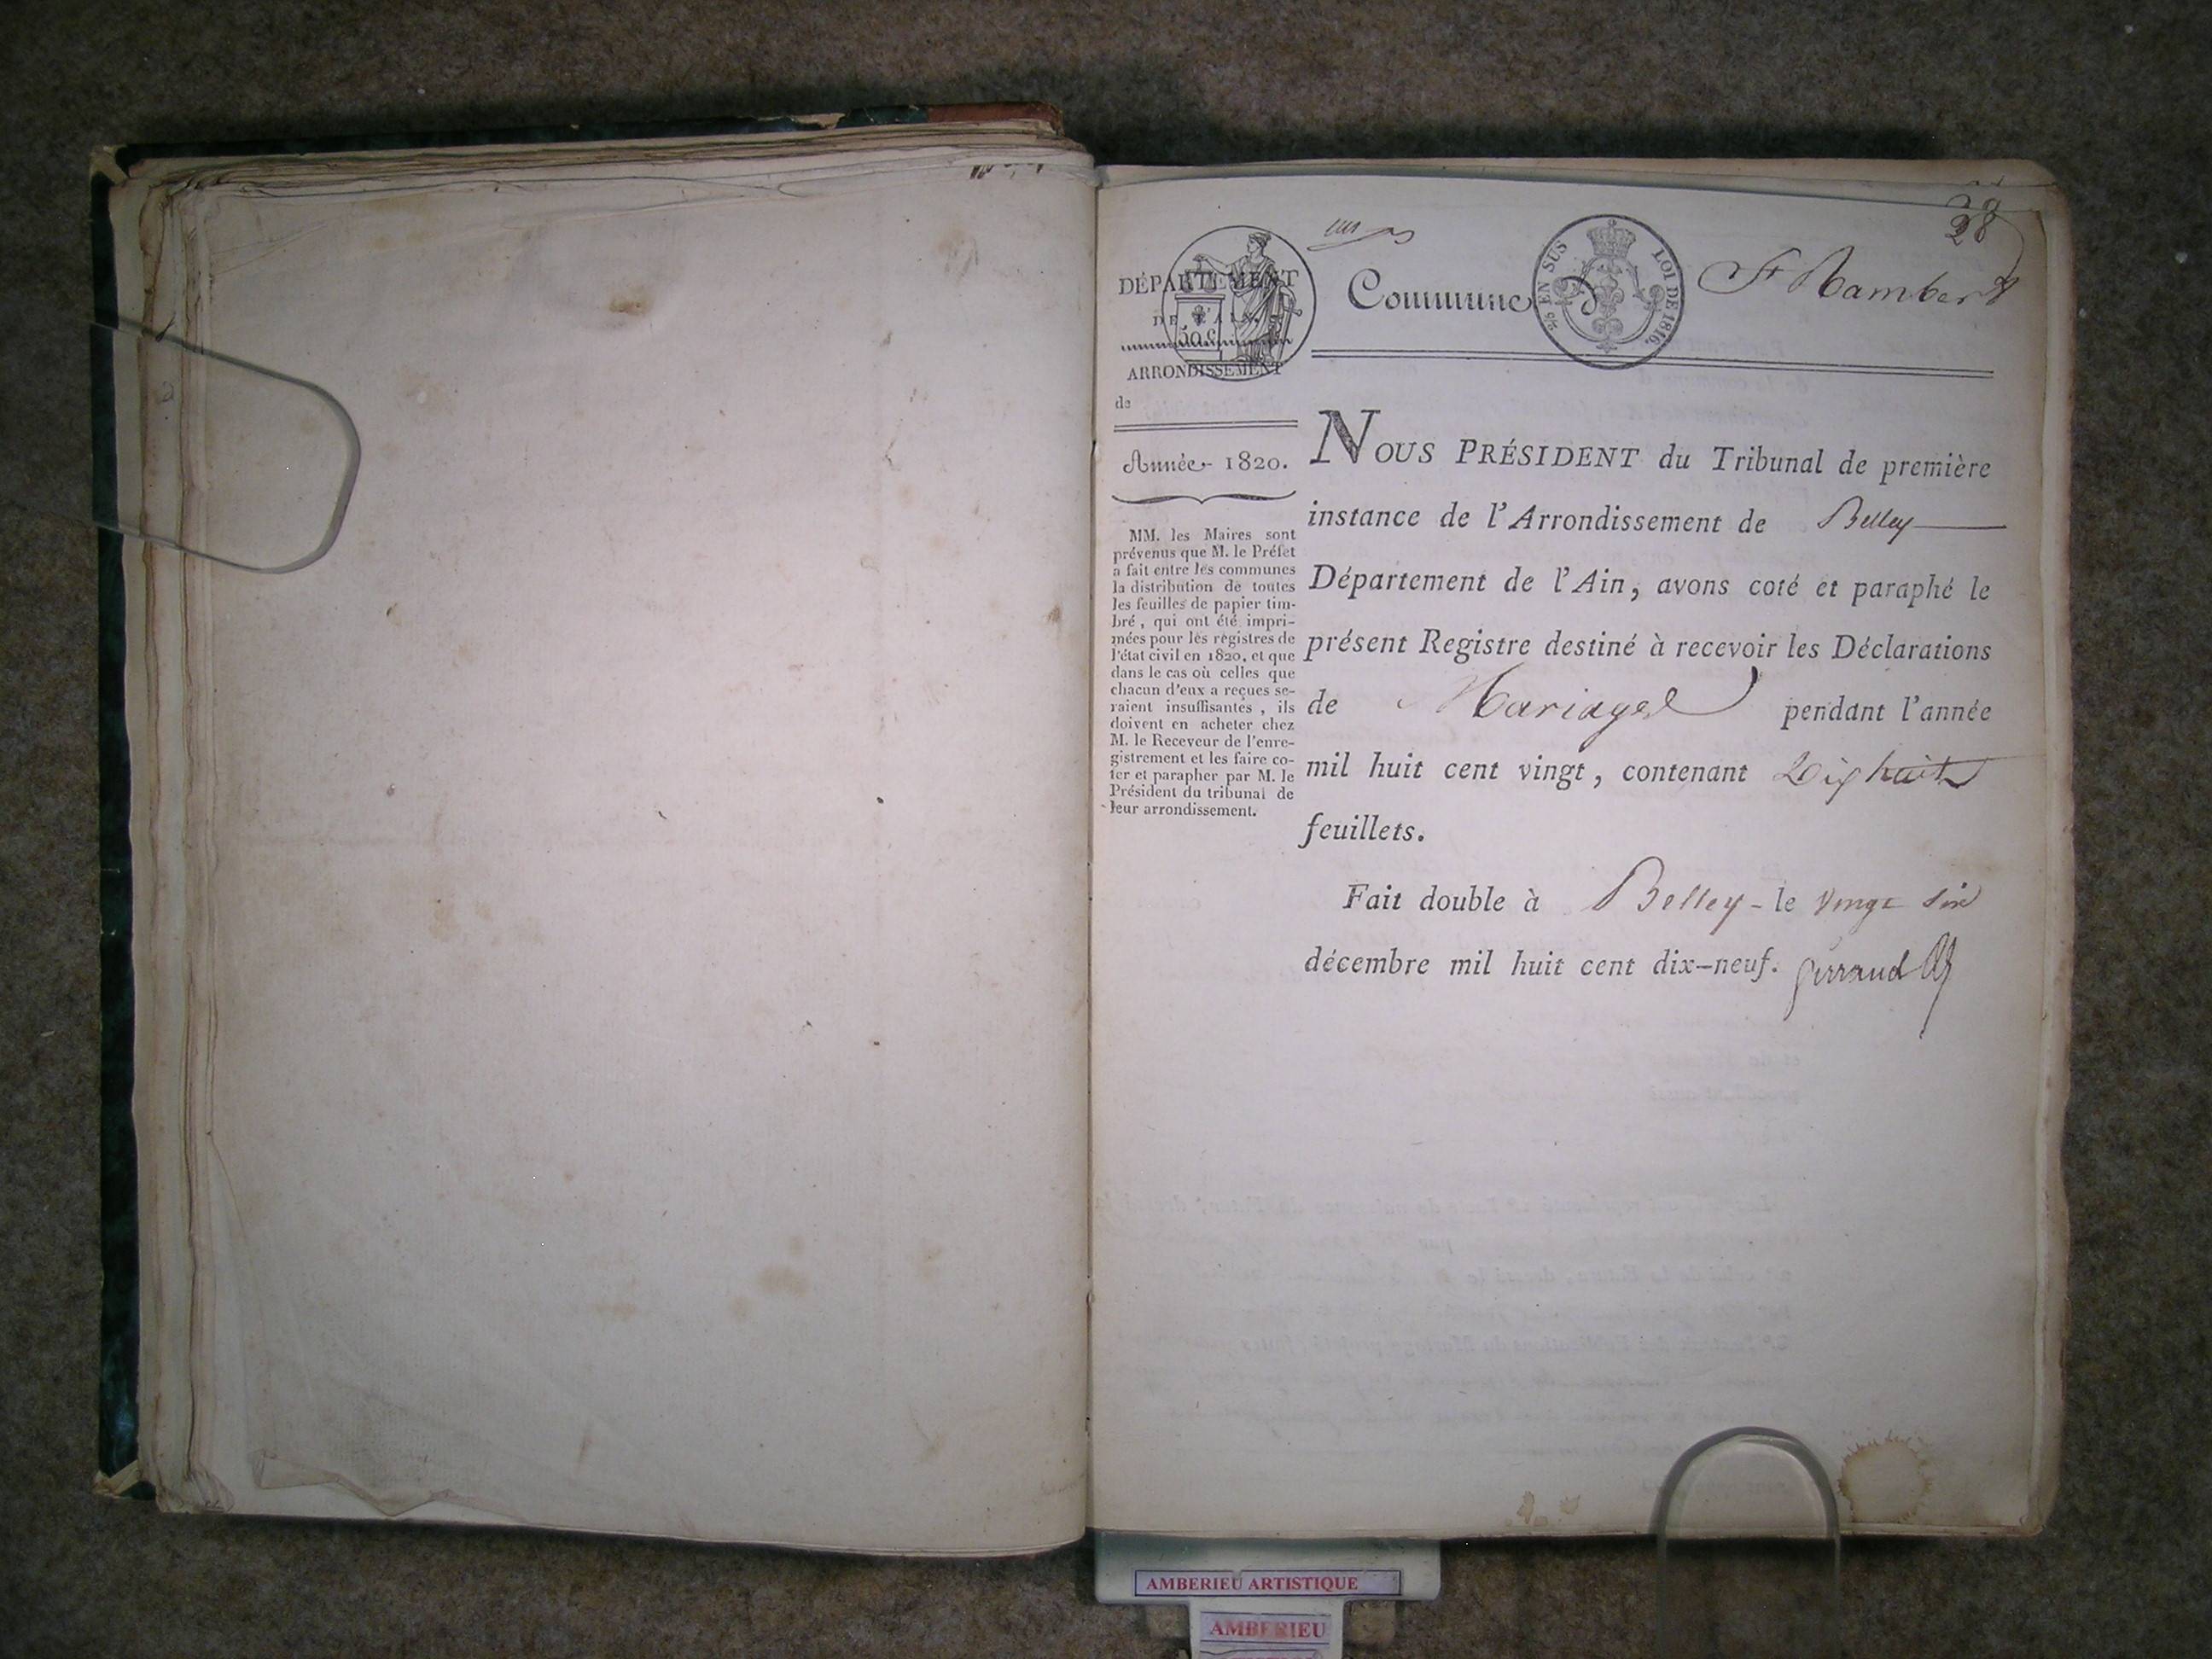 38
DÉPARTEMENT
DE L'AIN.
50 c.
ARRONDISSEMENT
de
Commune de St Rambert
2/5 EN SUS LOI DE 1816.
Année 1820.
MM. les Maires sont
prévenus que M. le Préfet
a fait entre les communes
la distribution de toutes
les feuilles de papier tim-
bré, qui ont été impri-
mées pour les régistres de
l'état civil en 1820, et que
dans le cas où celles que
chacun d'eux a reçues se-
raient insuffisantes, ils
doivent en acheter chez
M. le Receveur de l'enre-
gistrement et les faire co-
ter et parapher par M. le
Président du tribunal de
leur arrondissement.
NOUS PRÉSIDENT du Tribunal de première
instance de l'Arrondissement de Belley
Département de l'Ain, avons coté et paraphé le
présent Registre destiné à recevoir les Déclarations
de Mariages pendant l'année
mil huit cent vingt, contenant Dix huit
feuillets.
Fait double à Belley - le vingt six
décembre mil huit cent dix-neuf.
AMBERIEU ARTISTIQUE
AMBERIEU